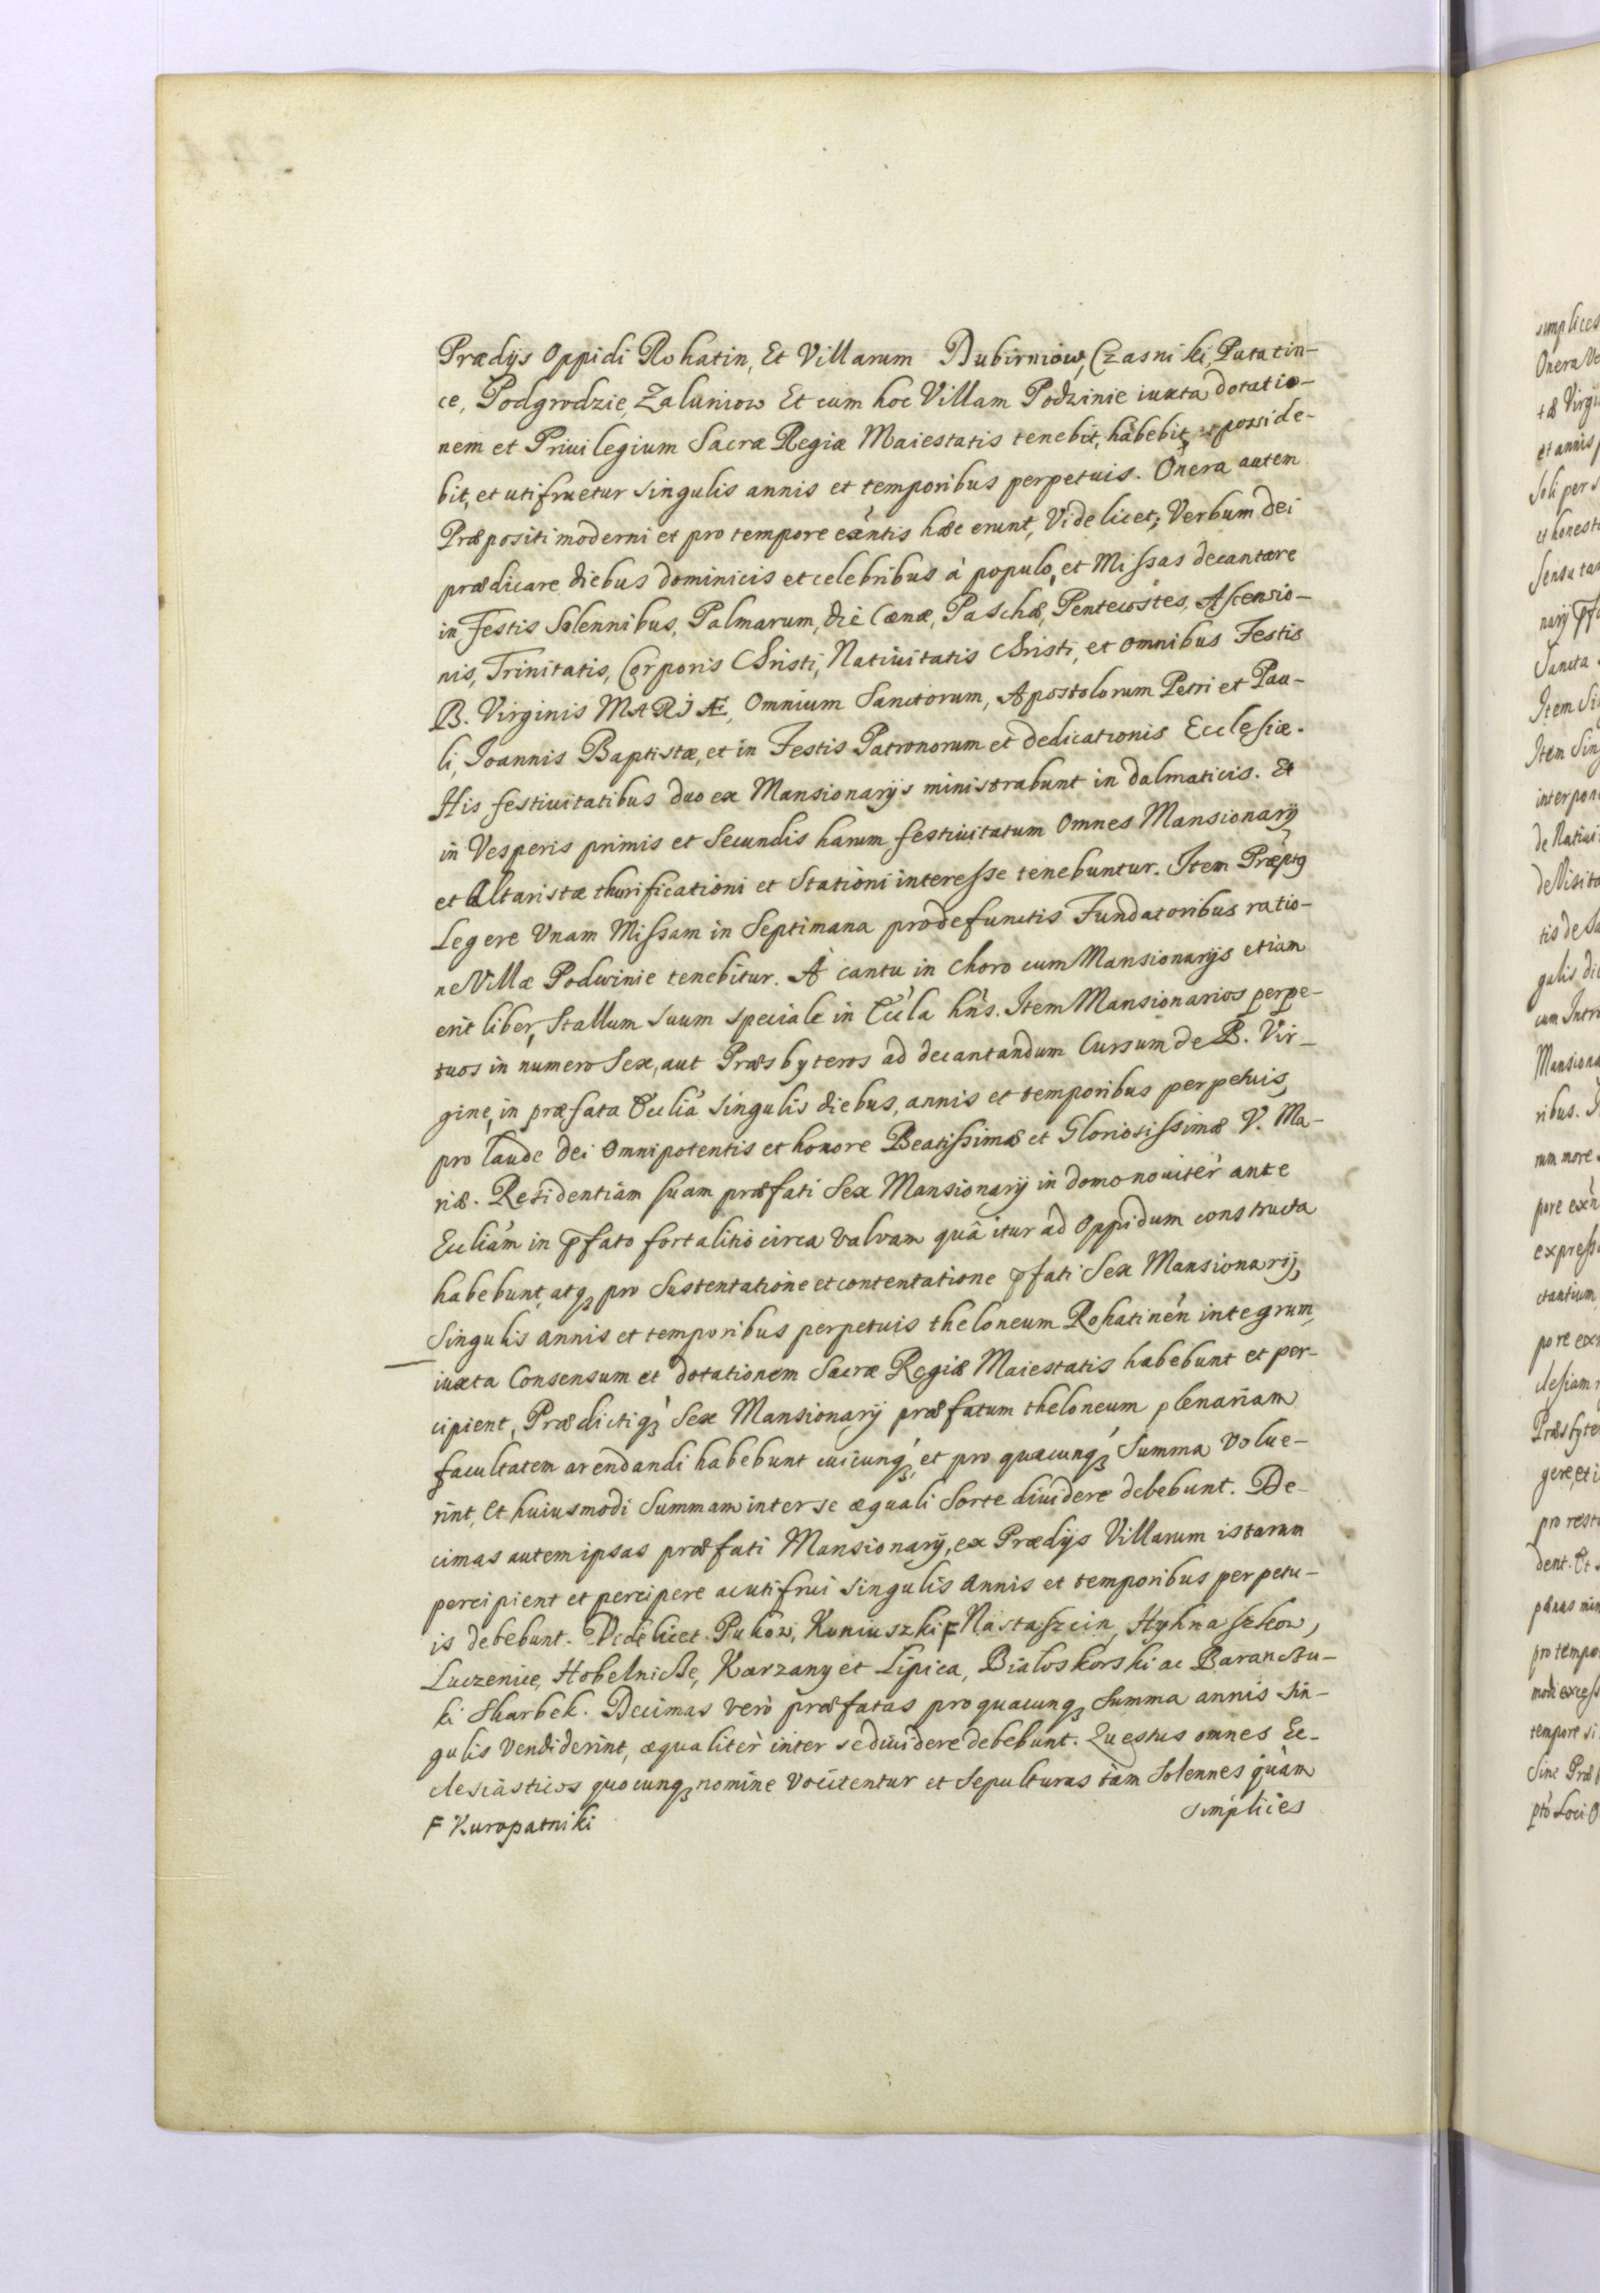 Prædijs Oppidi Rohatin, Et Villarum Dubirniow, Czasniki, Putatin-
ce, Podgrodzie, Zaluniow Et cum hoc Villam Podwinie iuxta dotatio-
nem et Priuilegium Sacræ Regiæ Maiestatis tenebit, habebit, posside-
bit, et utifruetur singulis annis et temporibus perpetuis. Onera autem
Præpositi moderni et pro tempore exñtis hæc erunt, Videlicet; Verbum dei
prædicare diebus dominicis et celebribus à populo, et Missas decantare
in Festis Solennibus, Palmarum, die Cænæ, Paschæ, Pentecostes, Ascensio-
nis, Trinitatis, Corporis Christi, Natiuitatis Christi, et omnibus Festis
B. Virginis MARIÆ, Omnium Sanctorum, Apostolorum Petri et Pau-
li, Joannis Baptistæ, et in Festis Patronorum et dedicationis Ecclesiæ.
His festiuitatibus duo ex Mansionarijs ministrabunt in dalmaticis. Et
in Vesperis primis et Secundis harum festiuitatum Omnes Mansionarij
et Altaristæ thurificationi et Stationi interesse tenebuntur. Item Præptꝰ
Legere Vnam Missam in Septimana pro defunctis Fundatoribus ratio-
ne Villæ Podwinie tenebitur. A cantu in choro cum Mansionarijs etiam
erit liber, Stallum suum speciale in Eccla hñs. Item Mansionarios perpe-
tuos in numero Sex, aut Præsbyteros ad decantandum Cursum de B. Vir-
gine, in præfata Eccliâ singulis diebus, annis et temporibus perpetuis,
pro laude dei omnipotentis et honore Beatissimæ et Gloriosissimæ V. Ma-
riæ. Residentiam suam præfati Sex Mansionarij in domo nouitèr ante
Eccliam in p̃fato fortalitio circa valvam quâ itur ad Oppidum constructa
habebunt, atqꝫ pro Sustentatione et contentatione p̃fati Sex Mansionarij,
Singulis annis et temporibus perpetuis theloneum Rohatinen̄ integrum,
iuxta Consensum et dotationem Sacræ Regiæ Maiestatis habebunt et per-
cipient, Prædictiqꝫ Sex Mansionarij præfatum theloneum plenariam
facultatem arendandi habebunt cuicunqꝫ, et pro quacunqꝫ Summa Volue-
rint, et huiusmodi Summam inter se æquali Sorte diuidere debebunt. De-
cimas autem ipsas præfati Mansionarij, ex Prædijs Villarum istarum
percipient et percipere ac utifrui singulis annis et temporibus perpetu-
is debebunt. Videlicet Pukow, Kuniuszki F Nastaszcin, Hyhnaszkow,
Luczenice, Hobelniche, Karzany et Lipica, Bialoskorski ac Baranchu-
ki Skarbek. Decimas verò præfatas pro quacunqꝫ Summa annis sin-
gulis Vendiderint, æqualitèr inter se diuidere debebunt. Quæstus omnes Ec-
clesiasticos quocunqꝫ nomine Vocitentur et Sepulturas tàm Solennes quàm
F Kuropatniki
simplices